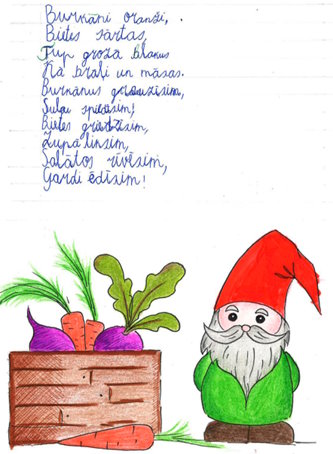 Burkāni oranži,
Bietes sārtas,
Tup groza blakus
Kā brāļi un māsas.
Burkānus grauzīsim,
Sulu spiedīsim!
Bietes griezīsim,
Zupā liksim,
Salātos rīvēsim,
Gardi ēdīsim!